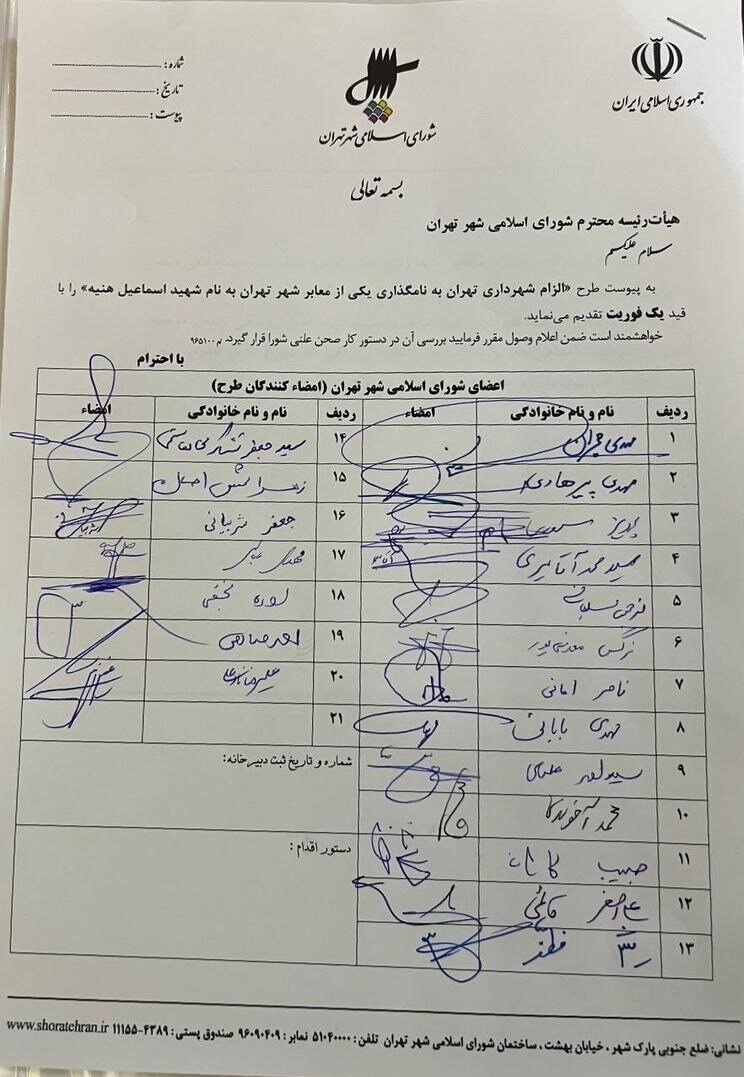 جمهوری اسلامی ایران
شورای اسلامی شهر تهران
شماره :
تاریخ :
پیوست :
بسمه تعالی
هیأت‌رئیسه محترم شورای اسلامی شهر تهران
سلام علیکم
به پیوست طرح «الزام شهرداری تهران به نامگذاری یکی از معابر شهر تهران به نام شهید اسماعیل هنیه» را با
قید یک فوریت تقدیم می‌نماید.
خواهشمند است ضمن اعلام وصول مقرر فرمایید بررسی آن در دستور کار صحن علنی شورا قرار گیرد. /م ۹۶۵۱۰۰
با احترام
اعضای شورای اسلامی شهر تهران (امضاء کنندگان طرح)
ردیف نام و نام خانوادگی امضاء ردیف نام و نام خانوادگی امضاء
۱ مهدی چمران ۱۴ سید جعفر تشکری هاشمی
۲ مهدی پیرهادی ۱۵ زهرا شمس احسان
۳ پرویز ۱۶ جعفر شربیانی
۴ سید محمد آقامیری ۱۷ مهدی عباسی
۵ ۱۸ سوده نجفی
۶ نرگس معدنی پور ۱۹ احمد صادقی
۷ ناصر امانی ۲۰ علیرضا نادعلی
۸ مهدی بابائی ۲۱
۹ سید احمد علوی
۱۰ محمد آخوندی
۱۱ حبیب کاشانی
۱۲ علی اصغر قائمی
۱۳
شماره و تاریخ ثبت دبیرخانه:
دستور اقدام :
نشانی: ضلع جنوبی پارک شهر ، خیابان بهشت ، ساختمان شورای اسلامی شهر تهران تلفن : ۵۱۰۴۰۰۰۰ نمابر : ۹۶۰۹۰۴۰۹ صندوق پستی : ۴۳۸۹-۱۱۱۵۵ www.shoratehran.ir